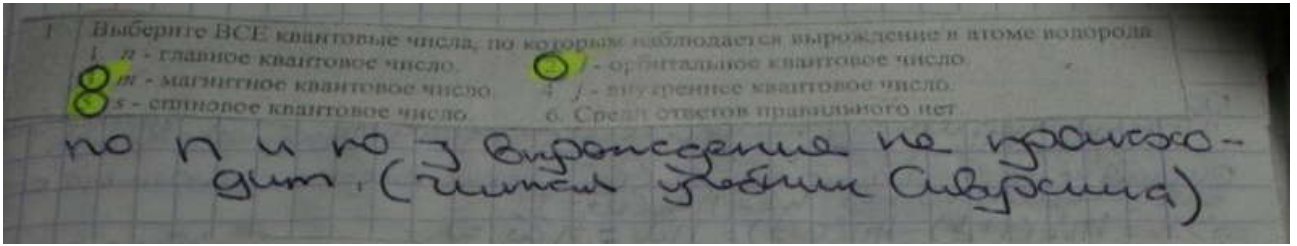 1 Выберите ВСЕ квантовые числа, по которым наблюдается вырождение в атоме водорода
1. n - главное квантовое число. 2. l - орбитальное квантовое число.
3. m - магнитное квантовое число. 4. j - внутреннее квантовое число.
5. s - спиновое квантовое число. 6. Среди ответов правильного нет
по n и по j вырождение не происхо-
дит. (читал учебник Сивухина)